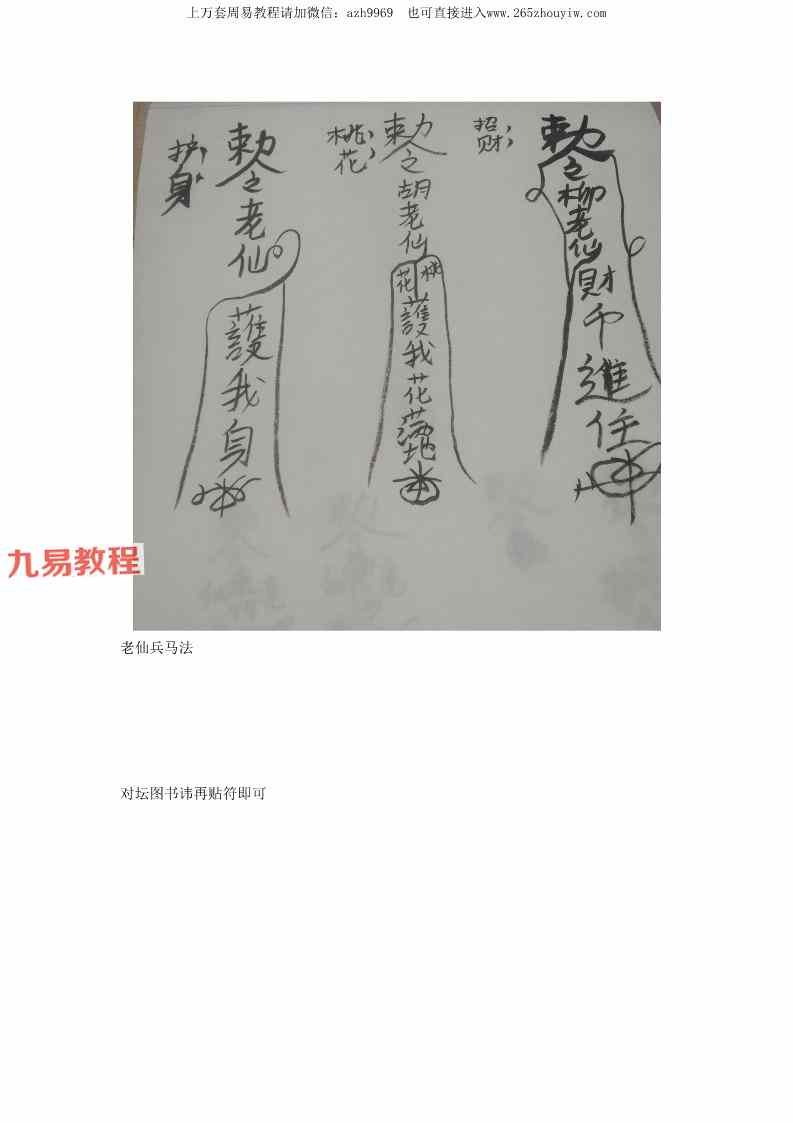 上万套周易教程请加微信：azh9969　也可直接进入www.265zhouyiw.com
护身
勅令老仙
護我身
桃花
勅令胡老仙
桃花
護我花蒲地
招财
勅令柳老仙
財币進住
九易教程
老仙兵马法
对坛图书讳再贴符即可